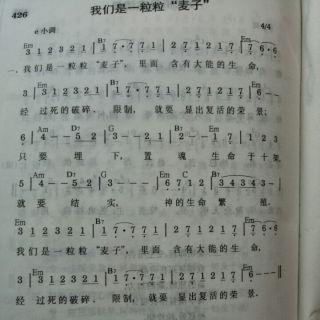 426
我们是一粒粒“麦子”
e小调 4/4
Em B7 Em
3 | 3 1 2 3 2 1 | 1 7· 7 7 1 | 2 1· 2 1 7 1 | 7 6· 6
一、我们是一粒粒“麦子”, 里面 含有大能的生 命,
Em B7 Em
3 | 3 1 2 3 2 1 | 1 7· 7 7 1 | 2 1· 2 1 7 1 | 7 6· 6
经 过死的破碎、限制, 就要 显出复活的荣 景;
Am D7 G B7 Em
只 要 埋 下, 置 魂 生命于十架,
Am D7 G Em C B7
就 要 结 实, 神的生命 繁 殖。
Em B7 Em
3 | 3 1 2 3 2 1 | 1 7· 7 7 1 | 2 1· 2 1 7 1 | 7 6· 6
我 们是一粒粒“麦子”, 里面 含有大能的生 命,
Em B7 Em
3 | 3 1 2 3 2 1 | 1 7· 7 7 1 | 2 1· 2 1 7 1 | 6 - - ‖
经 过死的破碎、限制, 就要 显出复活的荣 景。